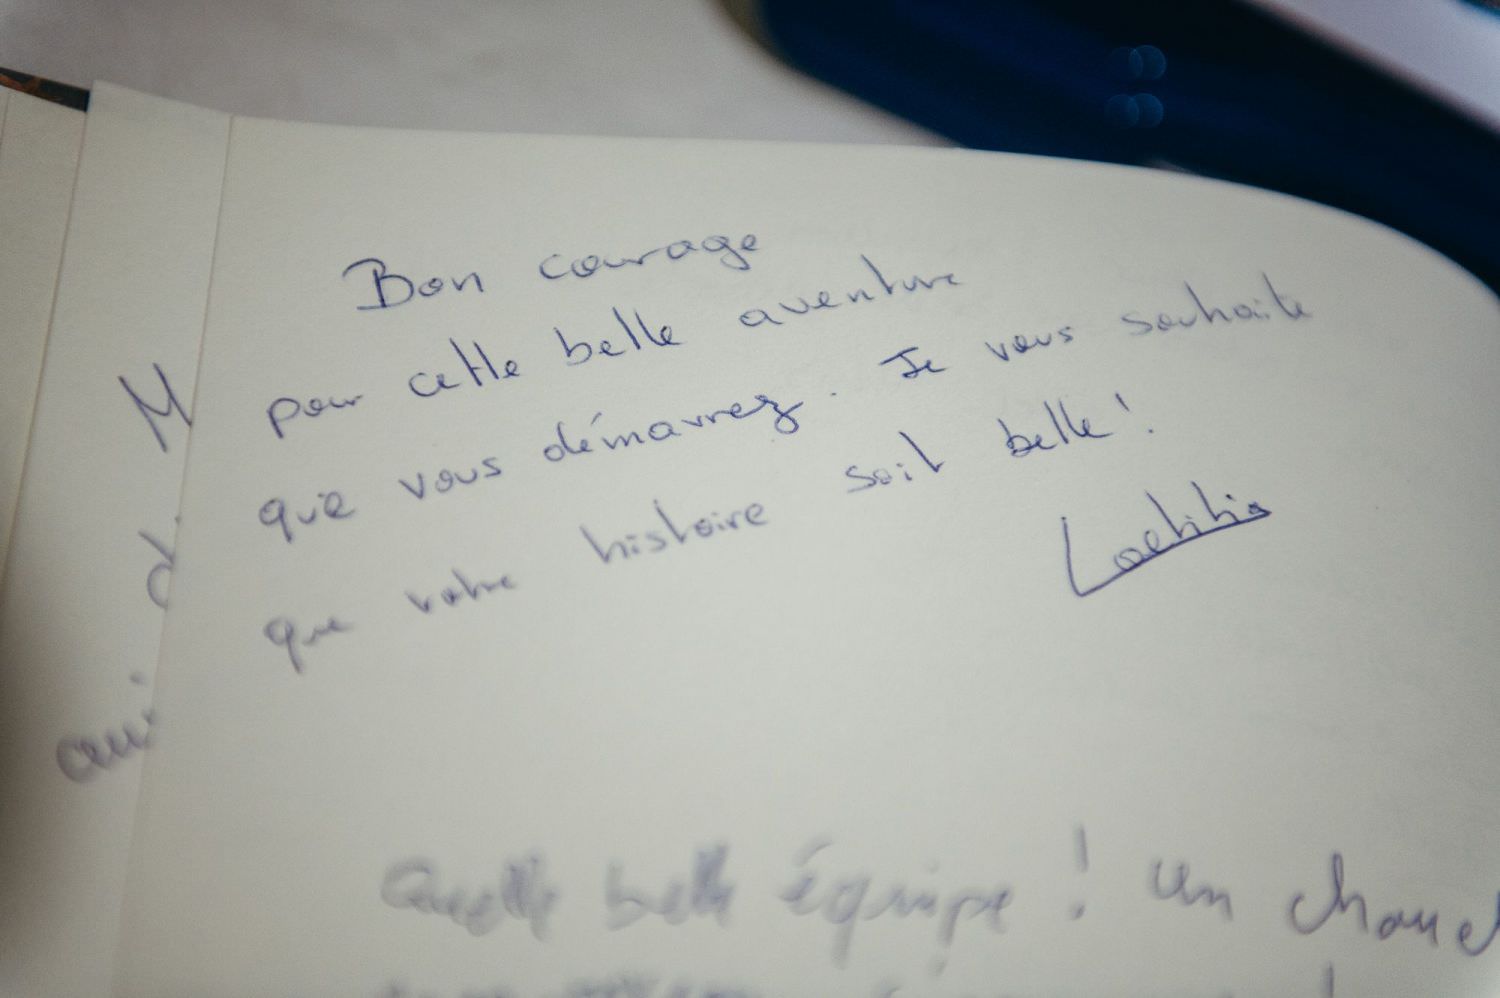 M
d
Bon courage
pour cette belle aventure
que vous démarrez. Je vous souhaite
que votre histoire soit belle !
Laetitia
Quelle belle équipe ! Un